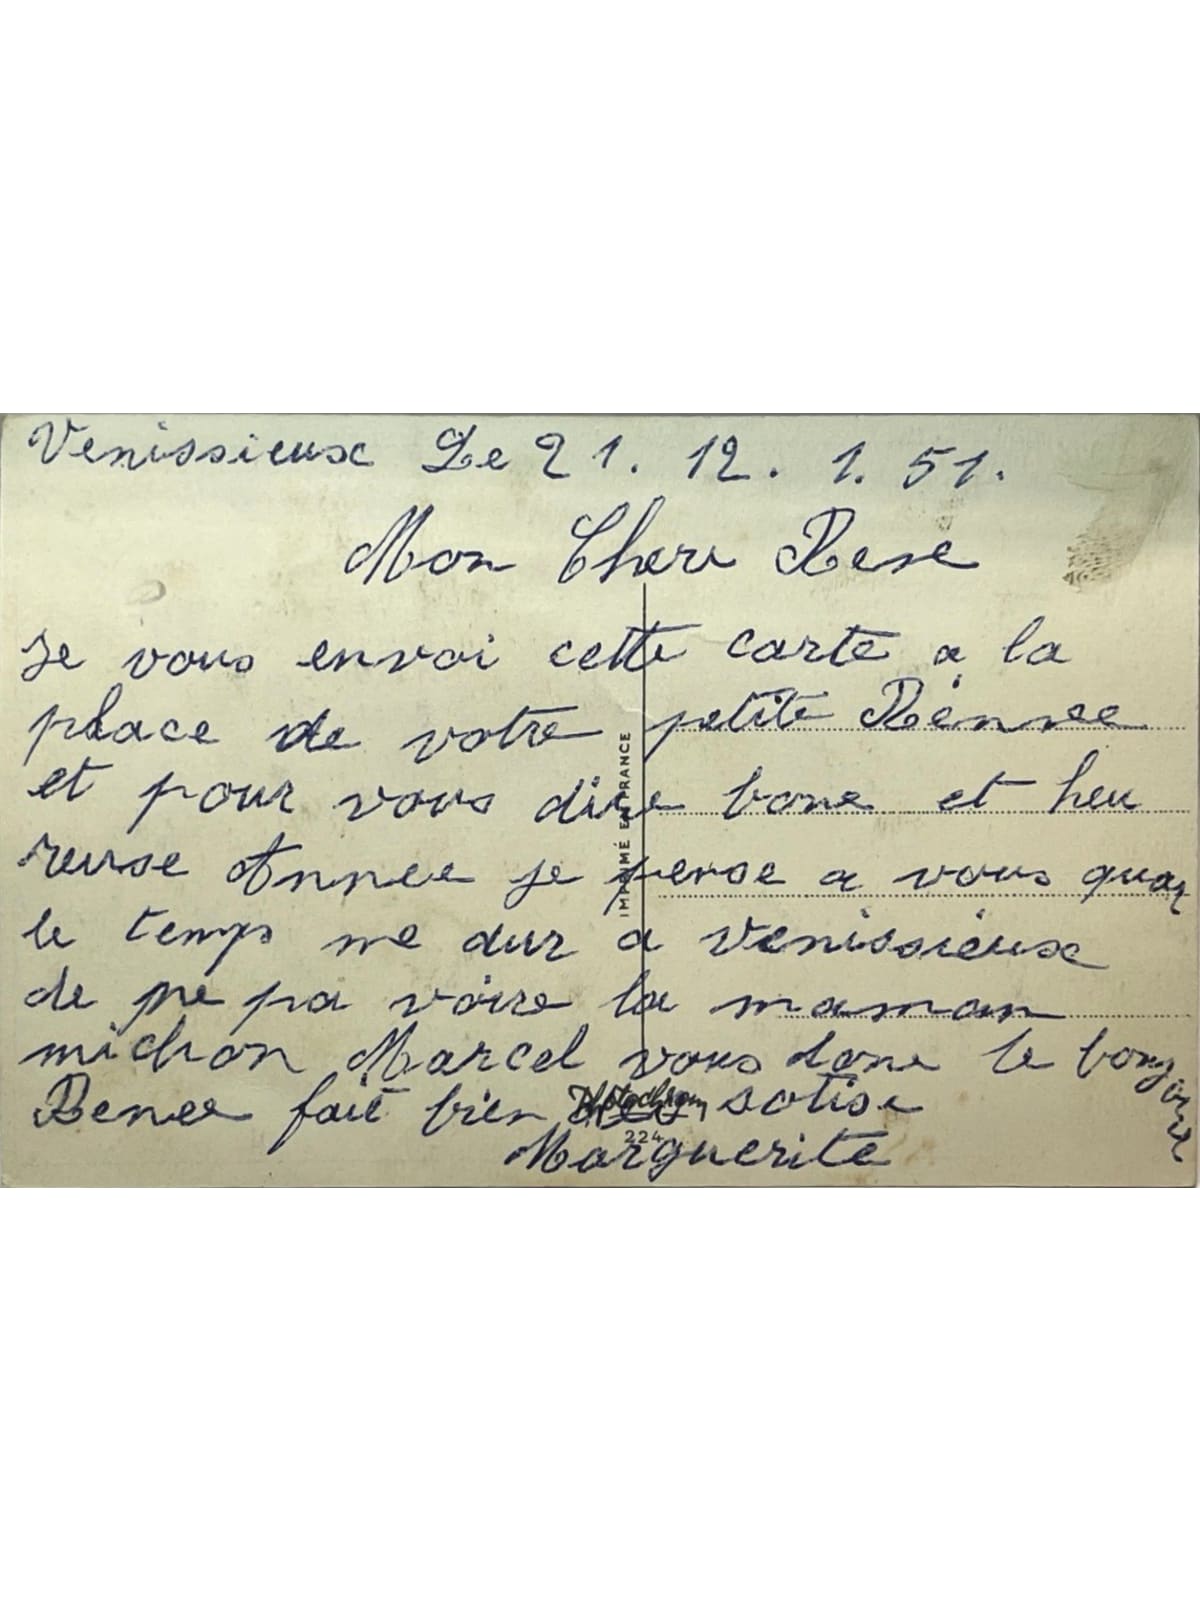 Venissieux Le 21. 12. 1. 51.
Mon Cher Rene
je vous envoi cette carte a la
place de votre petite Rénnee
et pour vous dire bone et heu
reuse Annee je pense a vous quar
le temps me dur a venissieux
de ne pa voire la maman
michon Marcel vous done le bonjour
Renee fait bien des sotise
Marguerite
IMPRIMÉ EN FRANCE
Photochrom
224